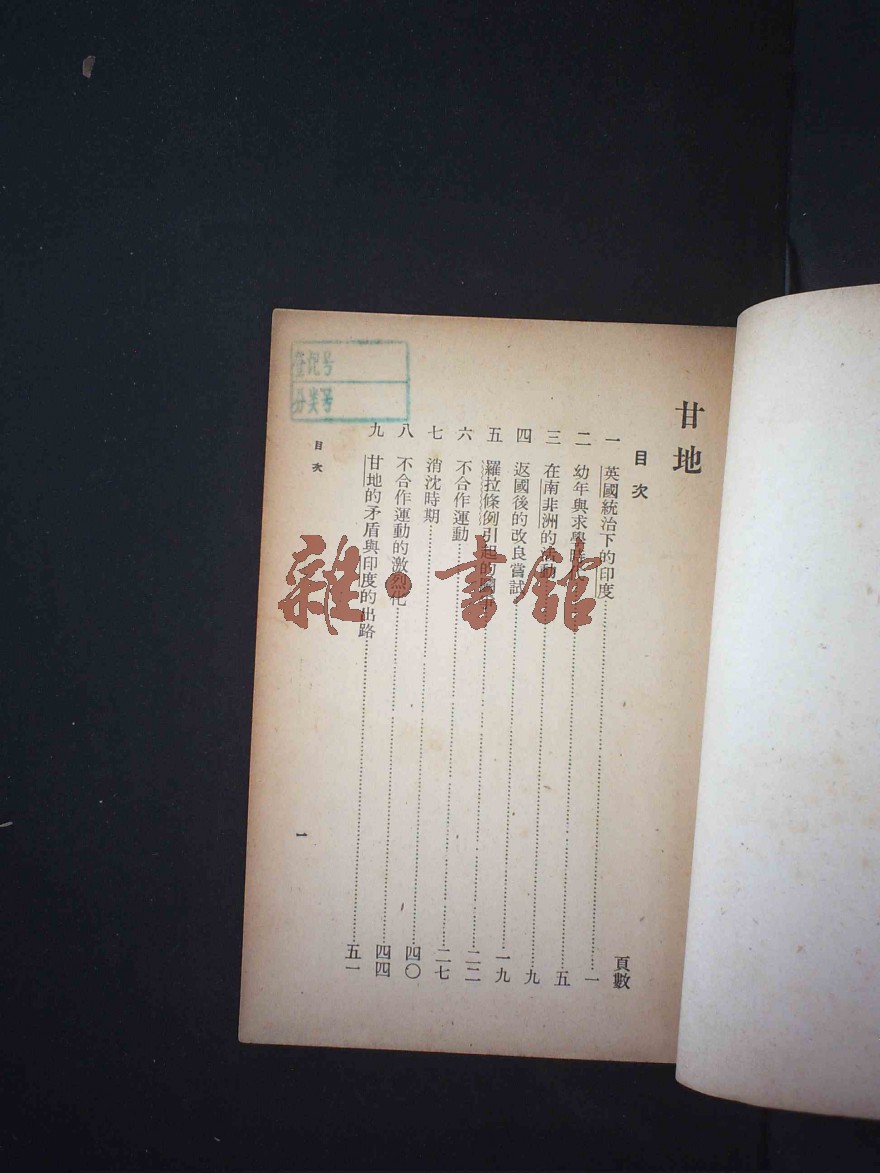 甘地
目次
頁數
一 英國統治下的印度 一
二 幼年與求學時代 五
三 在南非洲的活動 九
四 返國後的改良嘗試 一九
五 羅拉條例引起的 二二
六 不合作運動 二七
七 消沈時期 四〇
八 不合作運動的激烈化 四四
九 甘地的矛盾與印度的出路 五一
目次
一
登记号
分类号
雜·書館